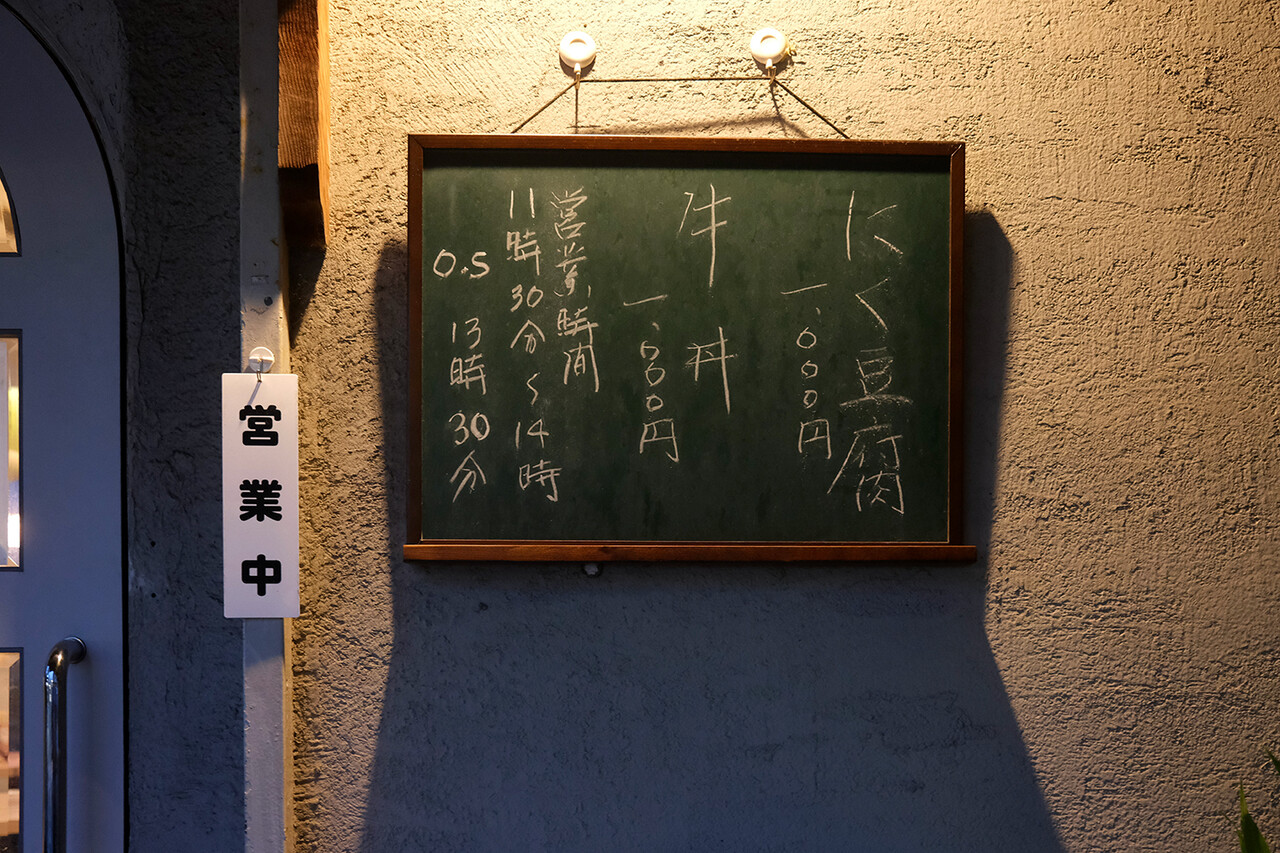 にく豆腐
一、〇〇〇円
牛丼
一、〇〇〇円
営業時間
11時30分〜14時
O.S 13時30分
営業中